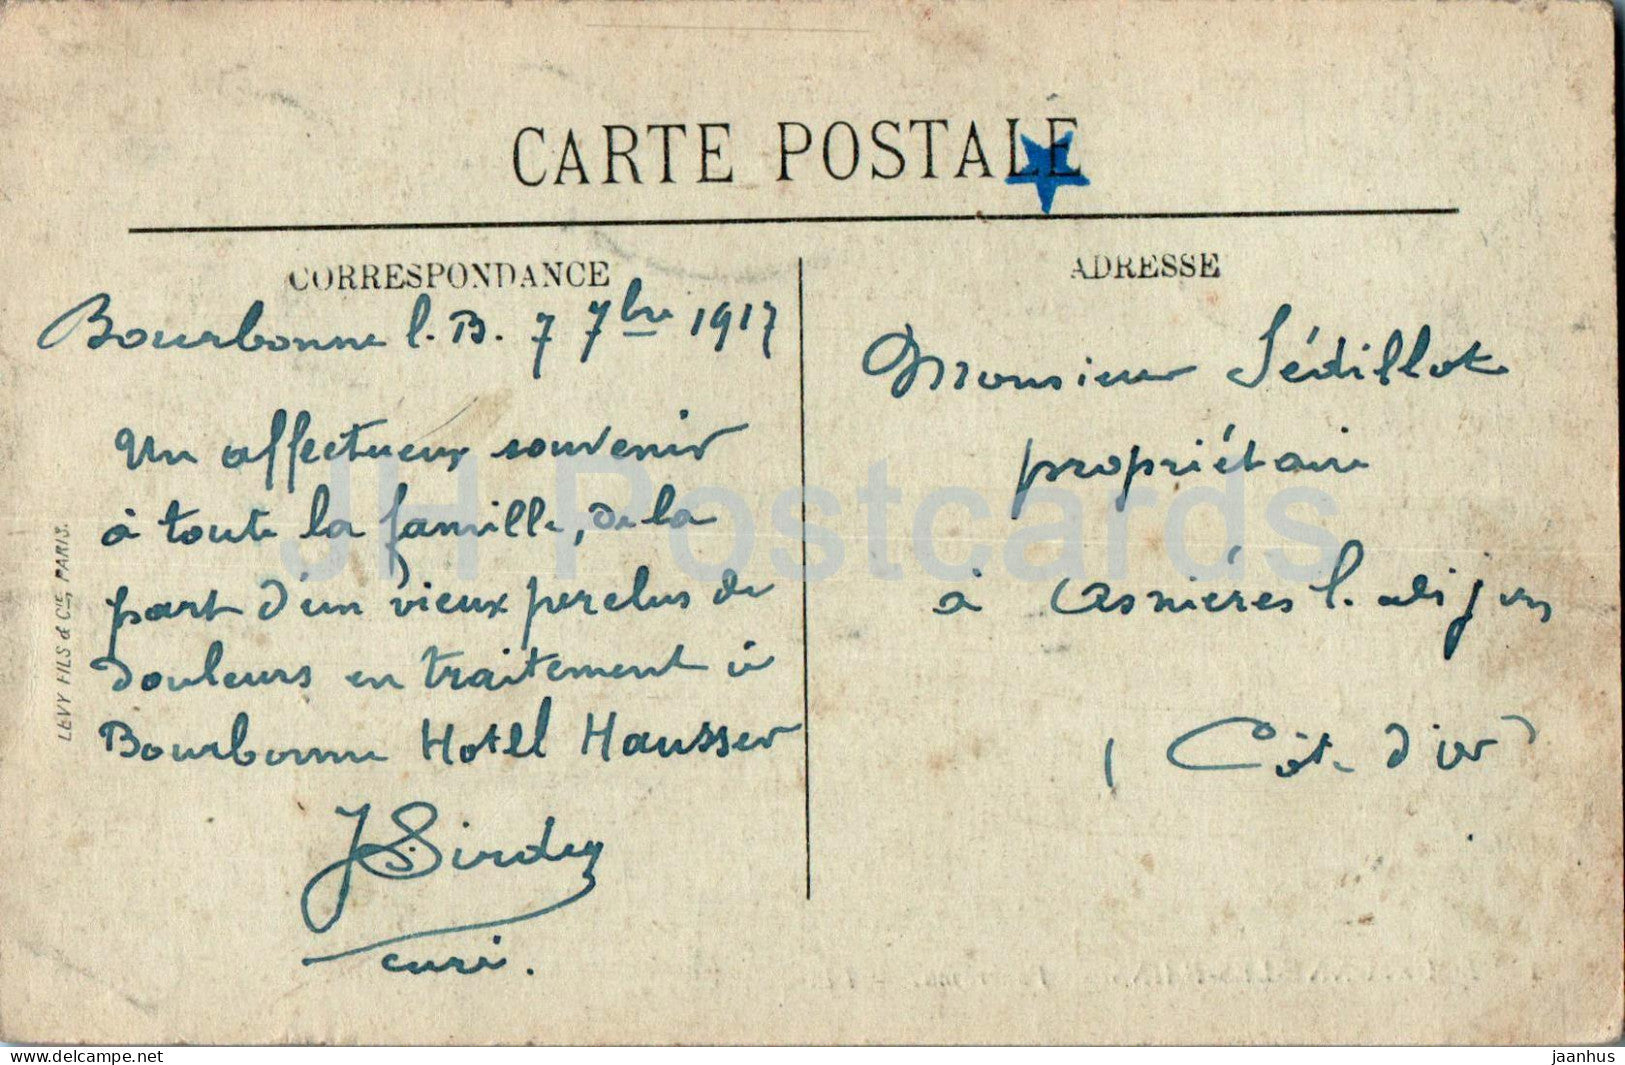 CARTE POSTALE
CORRESPONDANCE
Bourbonne l. B. 7 7bre 1917
Un affectueux souvenir
à toute la famille, de la
part d'un vieux perclus de
douleurs en traitement à
Bourbonne Hotel Hausser
J Sirdey
curé.
ADRESSE
Monsieur Sédillot
propriétaire
à Asnières l. dijon
(Côte d'or)
LEVY FILS & Cie, PARIS.
JH Postcards
https://www.delcampe.net
jaanhus